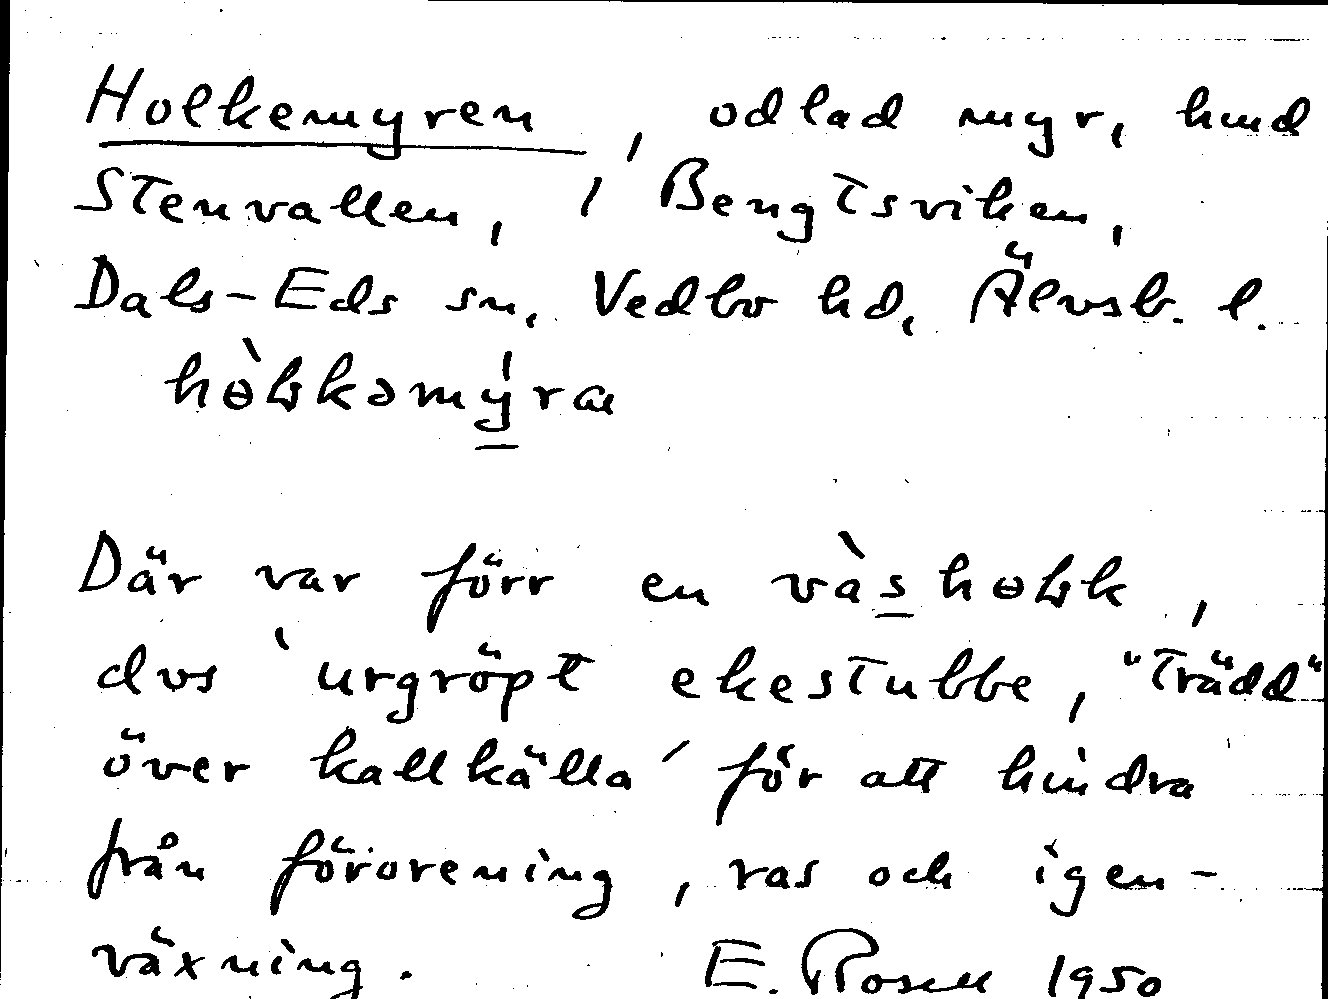 Holkemyren, odlad myr, hmd
Stenvallen, i Bengtsviken,
Dals-Eds sn, Vedbo hd, Älvsb. l.
hɵ̀ɫkəmýra
Där var förr en vàshɵɫk,
dvs ‵urgröpt ekestubbe, "trädd"
över kallkälla′ för att hindra
från förorening, ras och igen-
växning. E. Rosell 1950